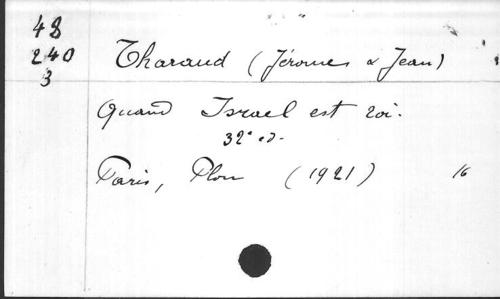 48
240
3
Tharaud (Jérome & Jean)
Quand Israel est roi.
32e ed.
Paris, Plon (1921) 16